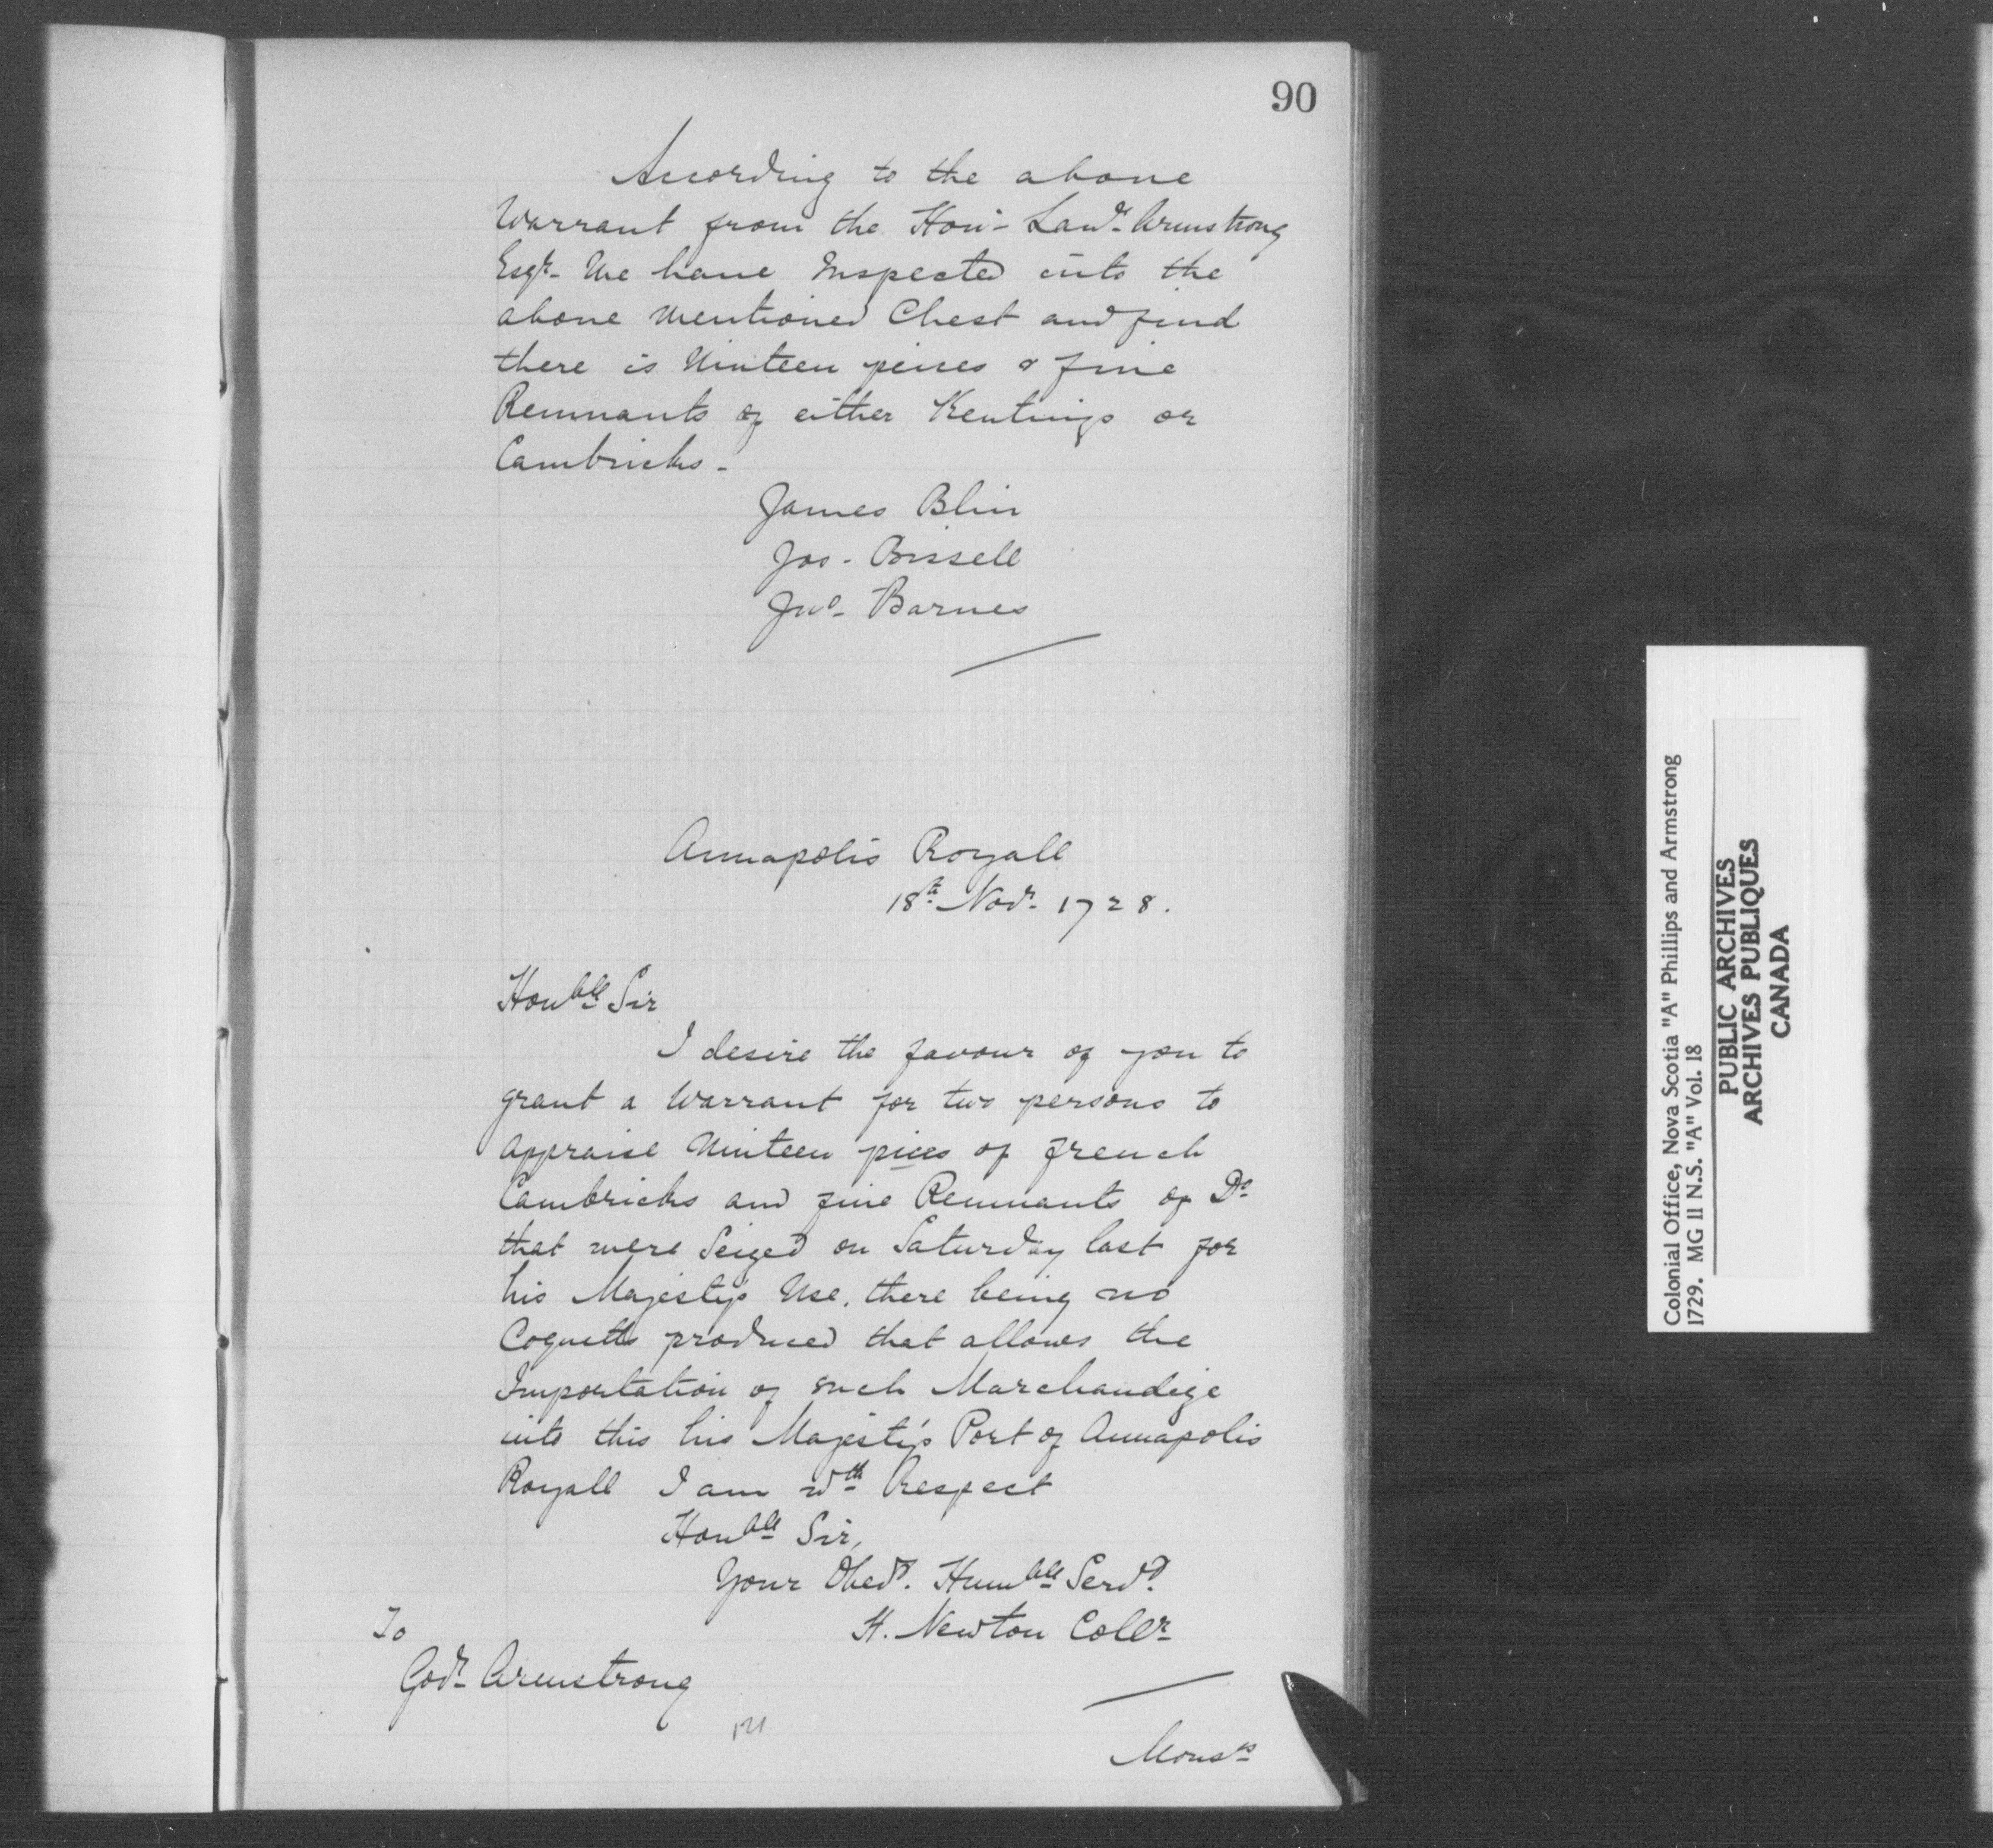 90
According to the above
Warrant from the Hon:- Law.e- Armstrong
Esqr- We have Inspected into the
above mentioned Chest and find
there is Ninteen peices & five
Remnants of either Kentings or
Cambricks-
James Blin
Jos- Bissell
Jno- Barnes
Annapolis Royall
18th Novr- 1728.
Honble Sir
I desire the favour of you to
grant a Warrant for two persons to
appraise Ninteen pices of french
Cambricks and five Remnants of Do
that were Seized on Saturday last for
his Majesty's Use, there being no
Coquetts produced that allows the
Importation of such Marchandize
into this his Majesty's Port of Annapolis
Royall I am wth Respect
Honble Sir,
Your Obedt. Humble Servt.
H. Newton Collr-
To
Govr- Armstrong
121
Colonial Office, Nova Scotia "A" Phillips and Armstrong
1729. MG 11 N.S. "A" Vol. 18
PUBLIC ARCHIVES
ARCHIVES PUBLIQUES
CANADA